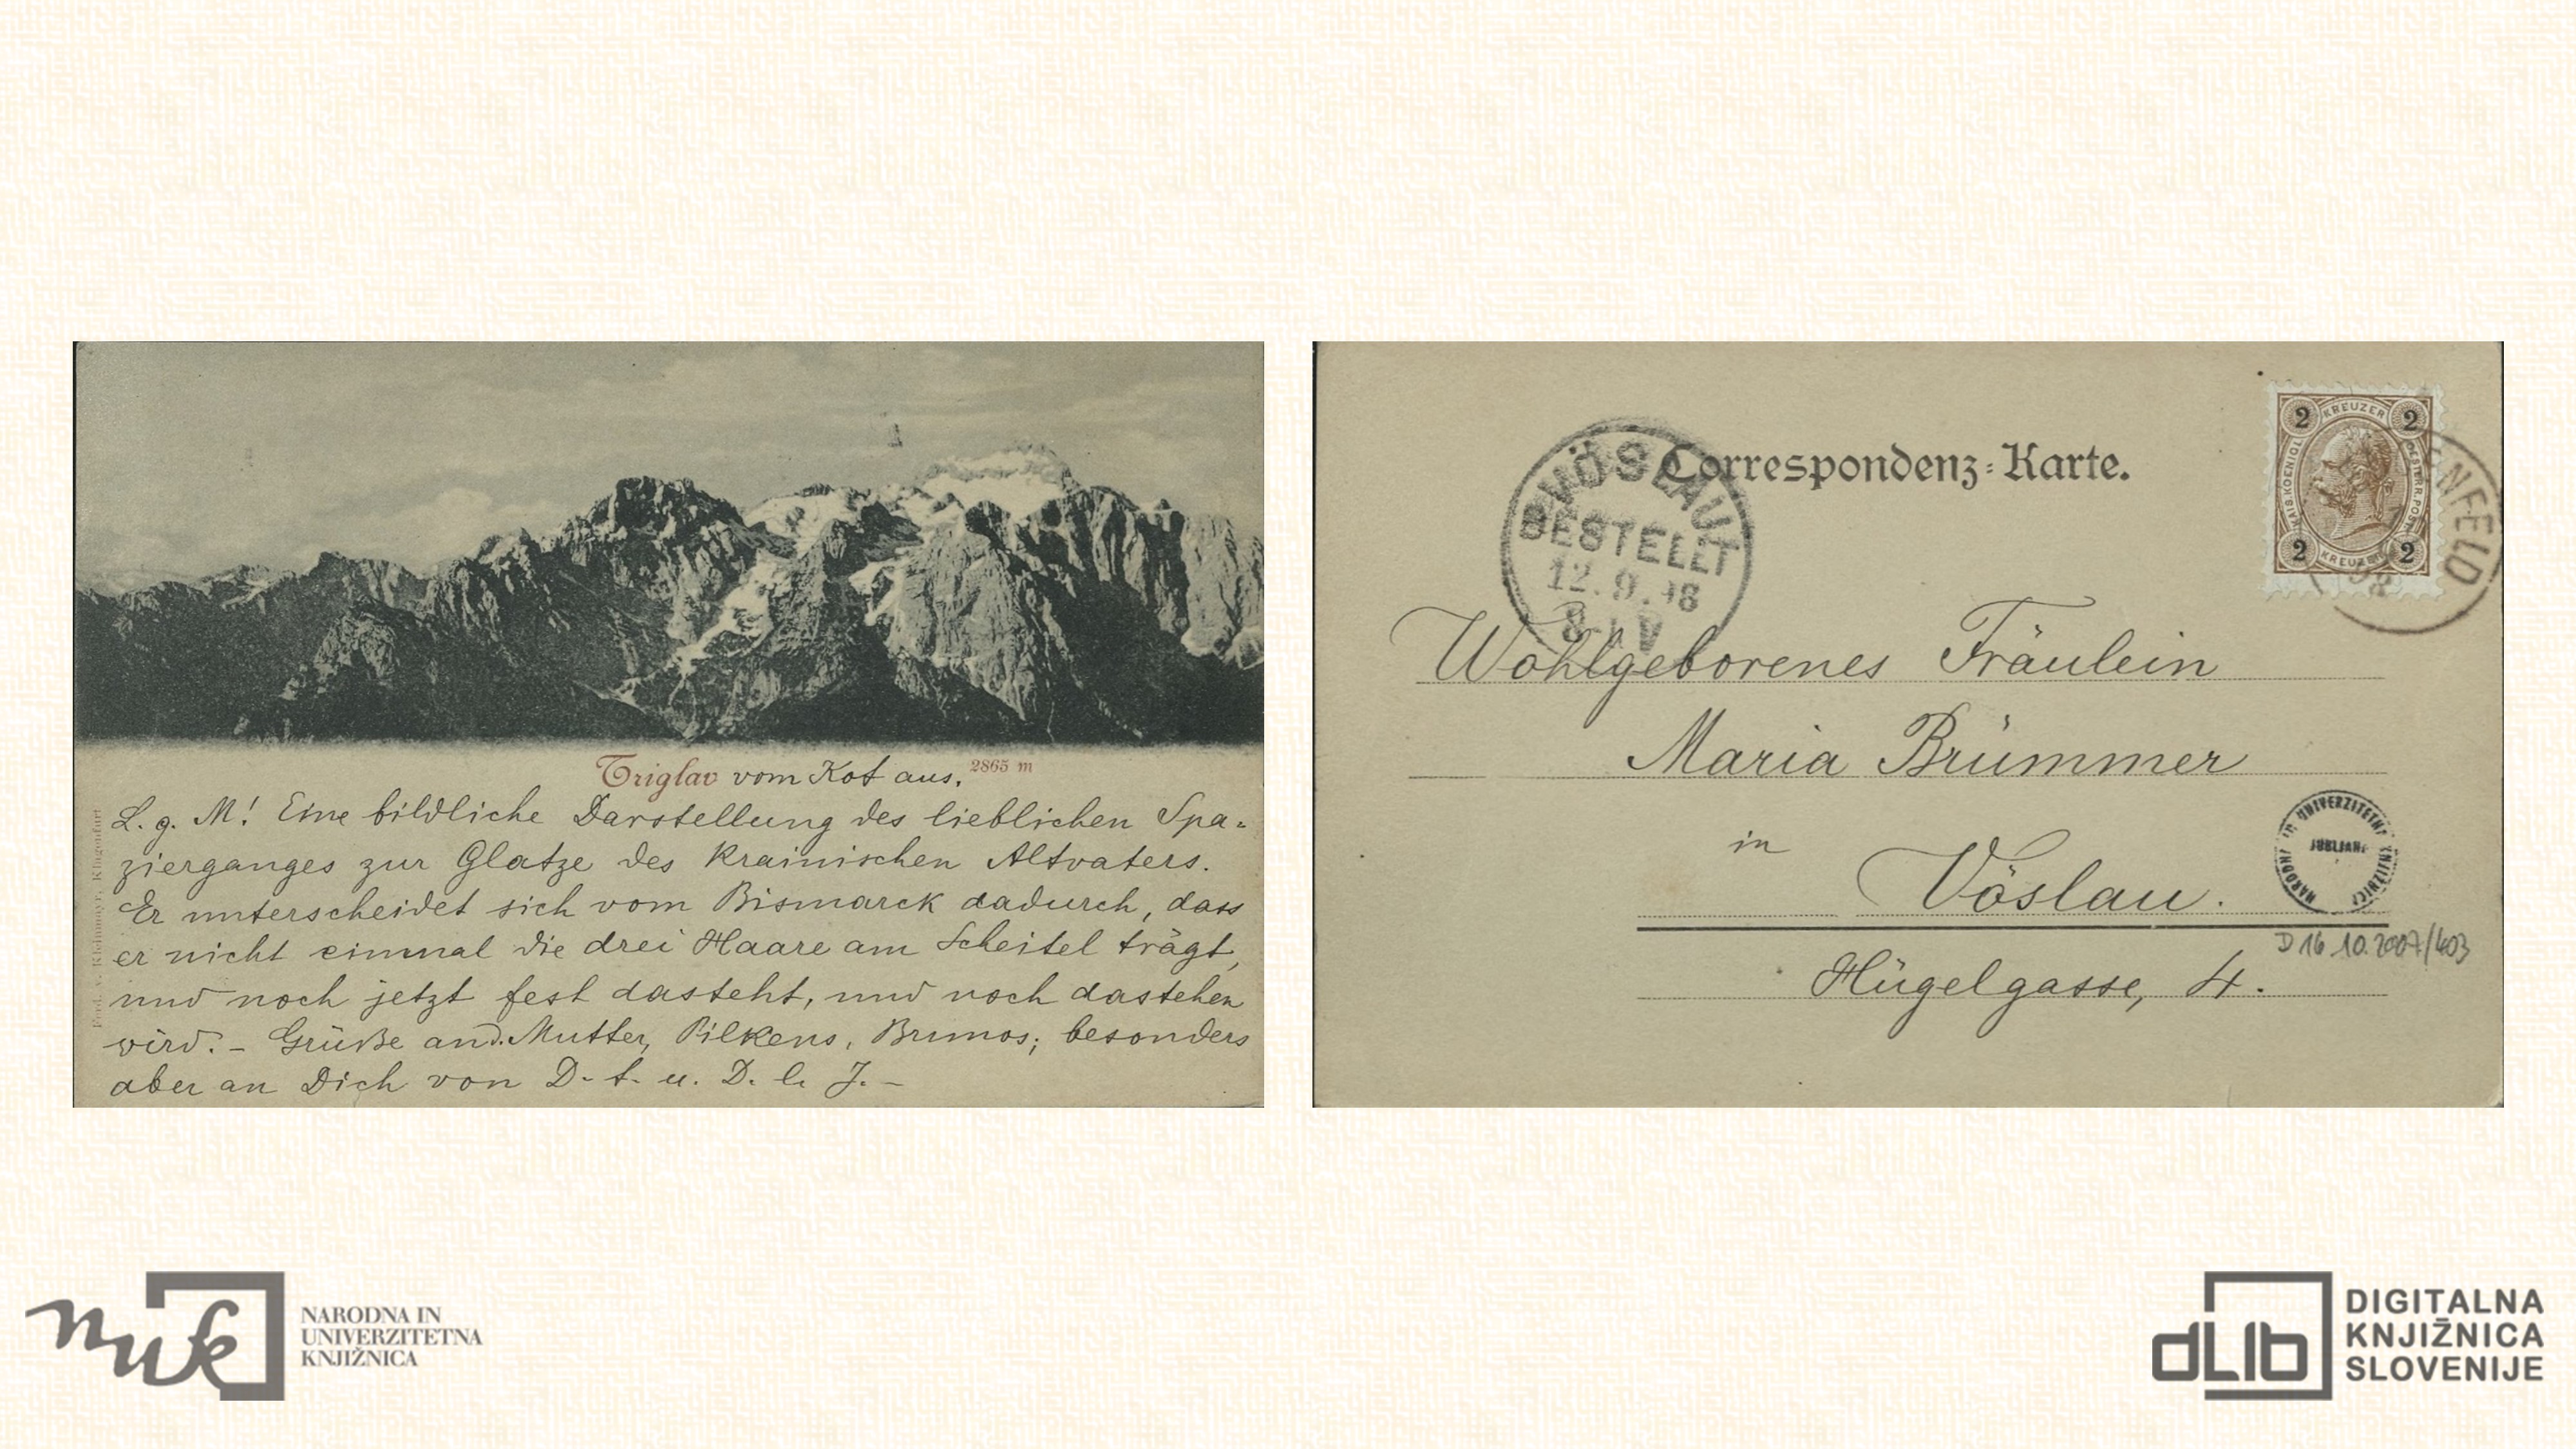 Triglav vom Kot aus. 2865 m
L. g. M! Eine bildliche Darstellung des lieblichen Spa-
zierganges zur Glatze des Krainischen Altvaters.
Er unterscheidet sich vom Bismarck dadurch, dass
er nicht einmal die drei Haare am Scheitel trägt,
und noch jetzt fest dasteht, und noch dastehen
wird. - Grüße an d. Mutter, Pilkens, Brunos; besonders
aber an Dich von D. t. u. D. l. J. -
Ferd. v. Kleinmayr, Klagenfurt
Correspondenz-Karte.
VÖSLAU
BESTELLT
12.9.98
8-
V
2 KREUZER 2
KAIS. KOENIGL.
OESTERR. POST
2 KREUZER 2
NFELD
98
Wohlgeborenes Fräulein
Maria Brümmer
in
Vöslau.
Hügelgasse, 4.
NARODNA IN UNIVERZITETNA KNJIŽNICA
D 16.10.2007/403
nuk
NARODNA IN
UNIVERZITETNA
KNJIŽNICA
dLib
DIGITALNA
KNJIŽNICA
SLOVENIJE